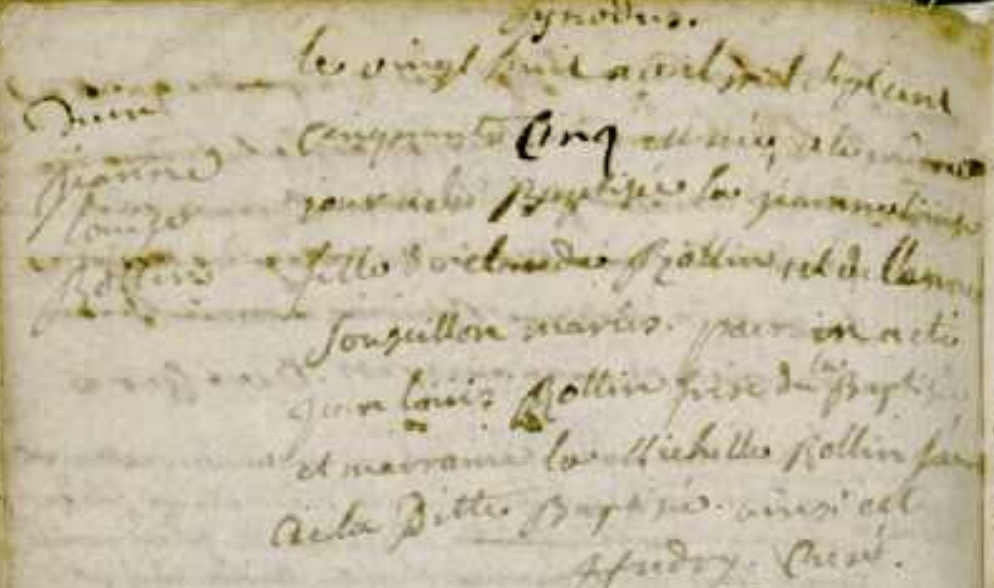 synodus.
le vingt huit avril mil sept cent
cinquante Cinq est née, et le même
jour a été Baptisée la jeanne Louise
Jeanne
Louise
Rollin
fille de Claude Rollin et de
Jonquillon mariés. parrin a été
jean Louis Rollin frère du la Baptisée
et marraine la Michelle Rollin
de la Ditte Baptisée. ainsi est
Curé.